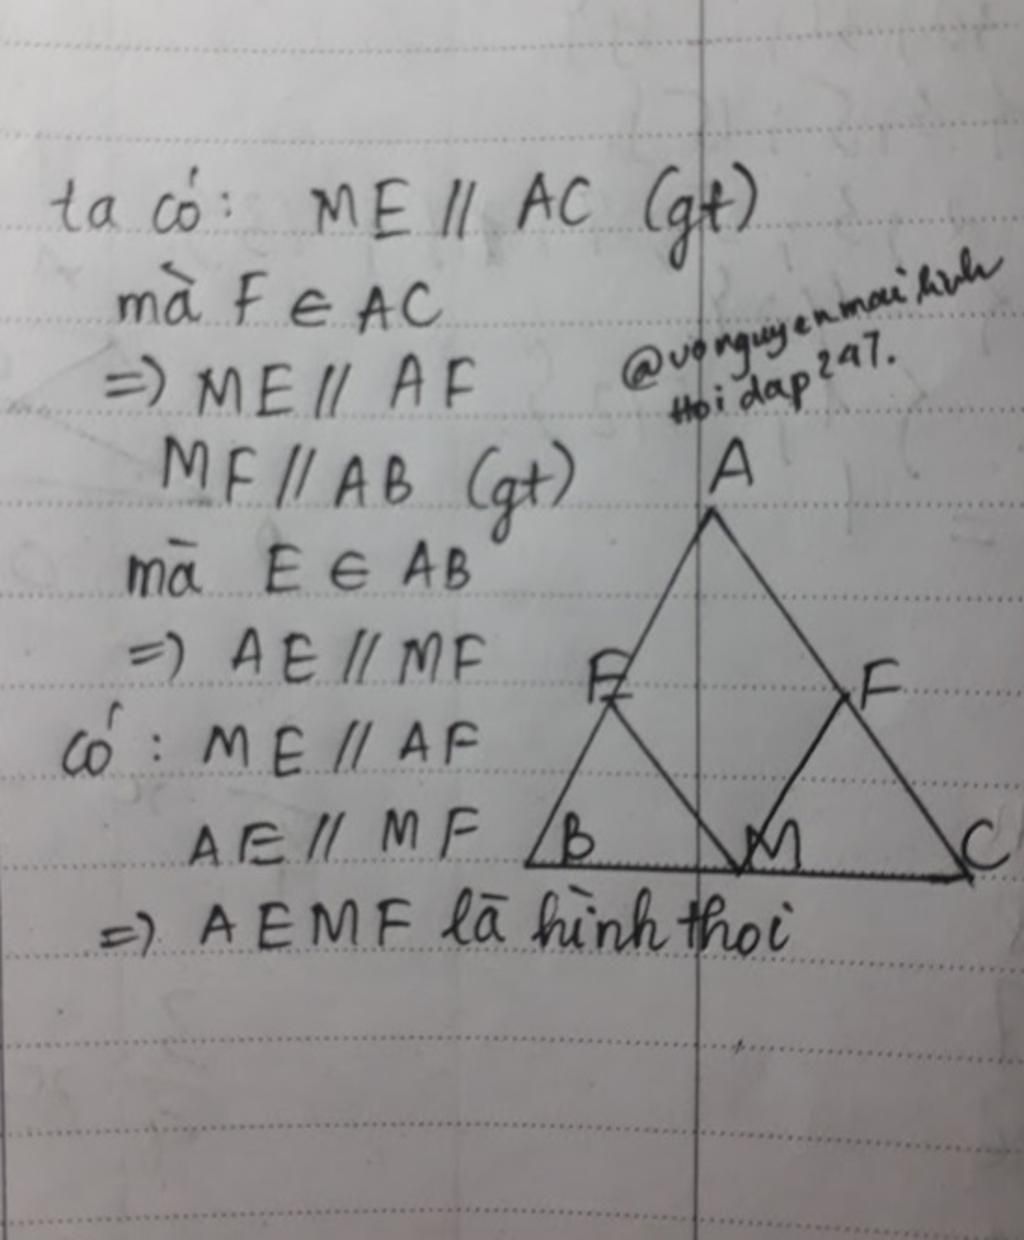 ta có: ME // AC (gt)
mà F ∈ AC
=) ME // AF
MF // AB (gt)
mà E ∈ AB
=) AE // MF
có: ME // AF
AE // MF
=) AEMF là hình thoi
@vonguyenmailinh
Hoi dap 247.
A
E
F
B
M
C